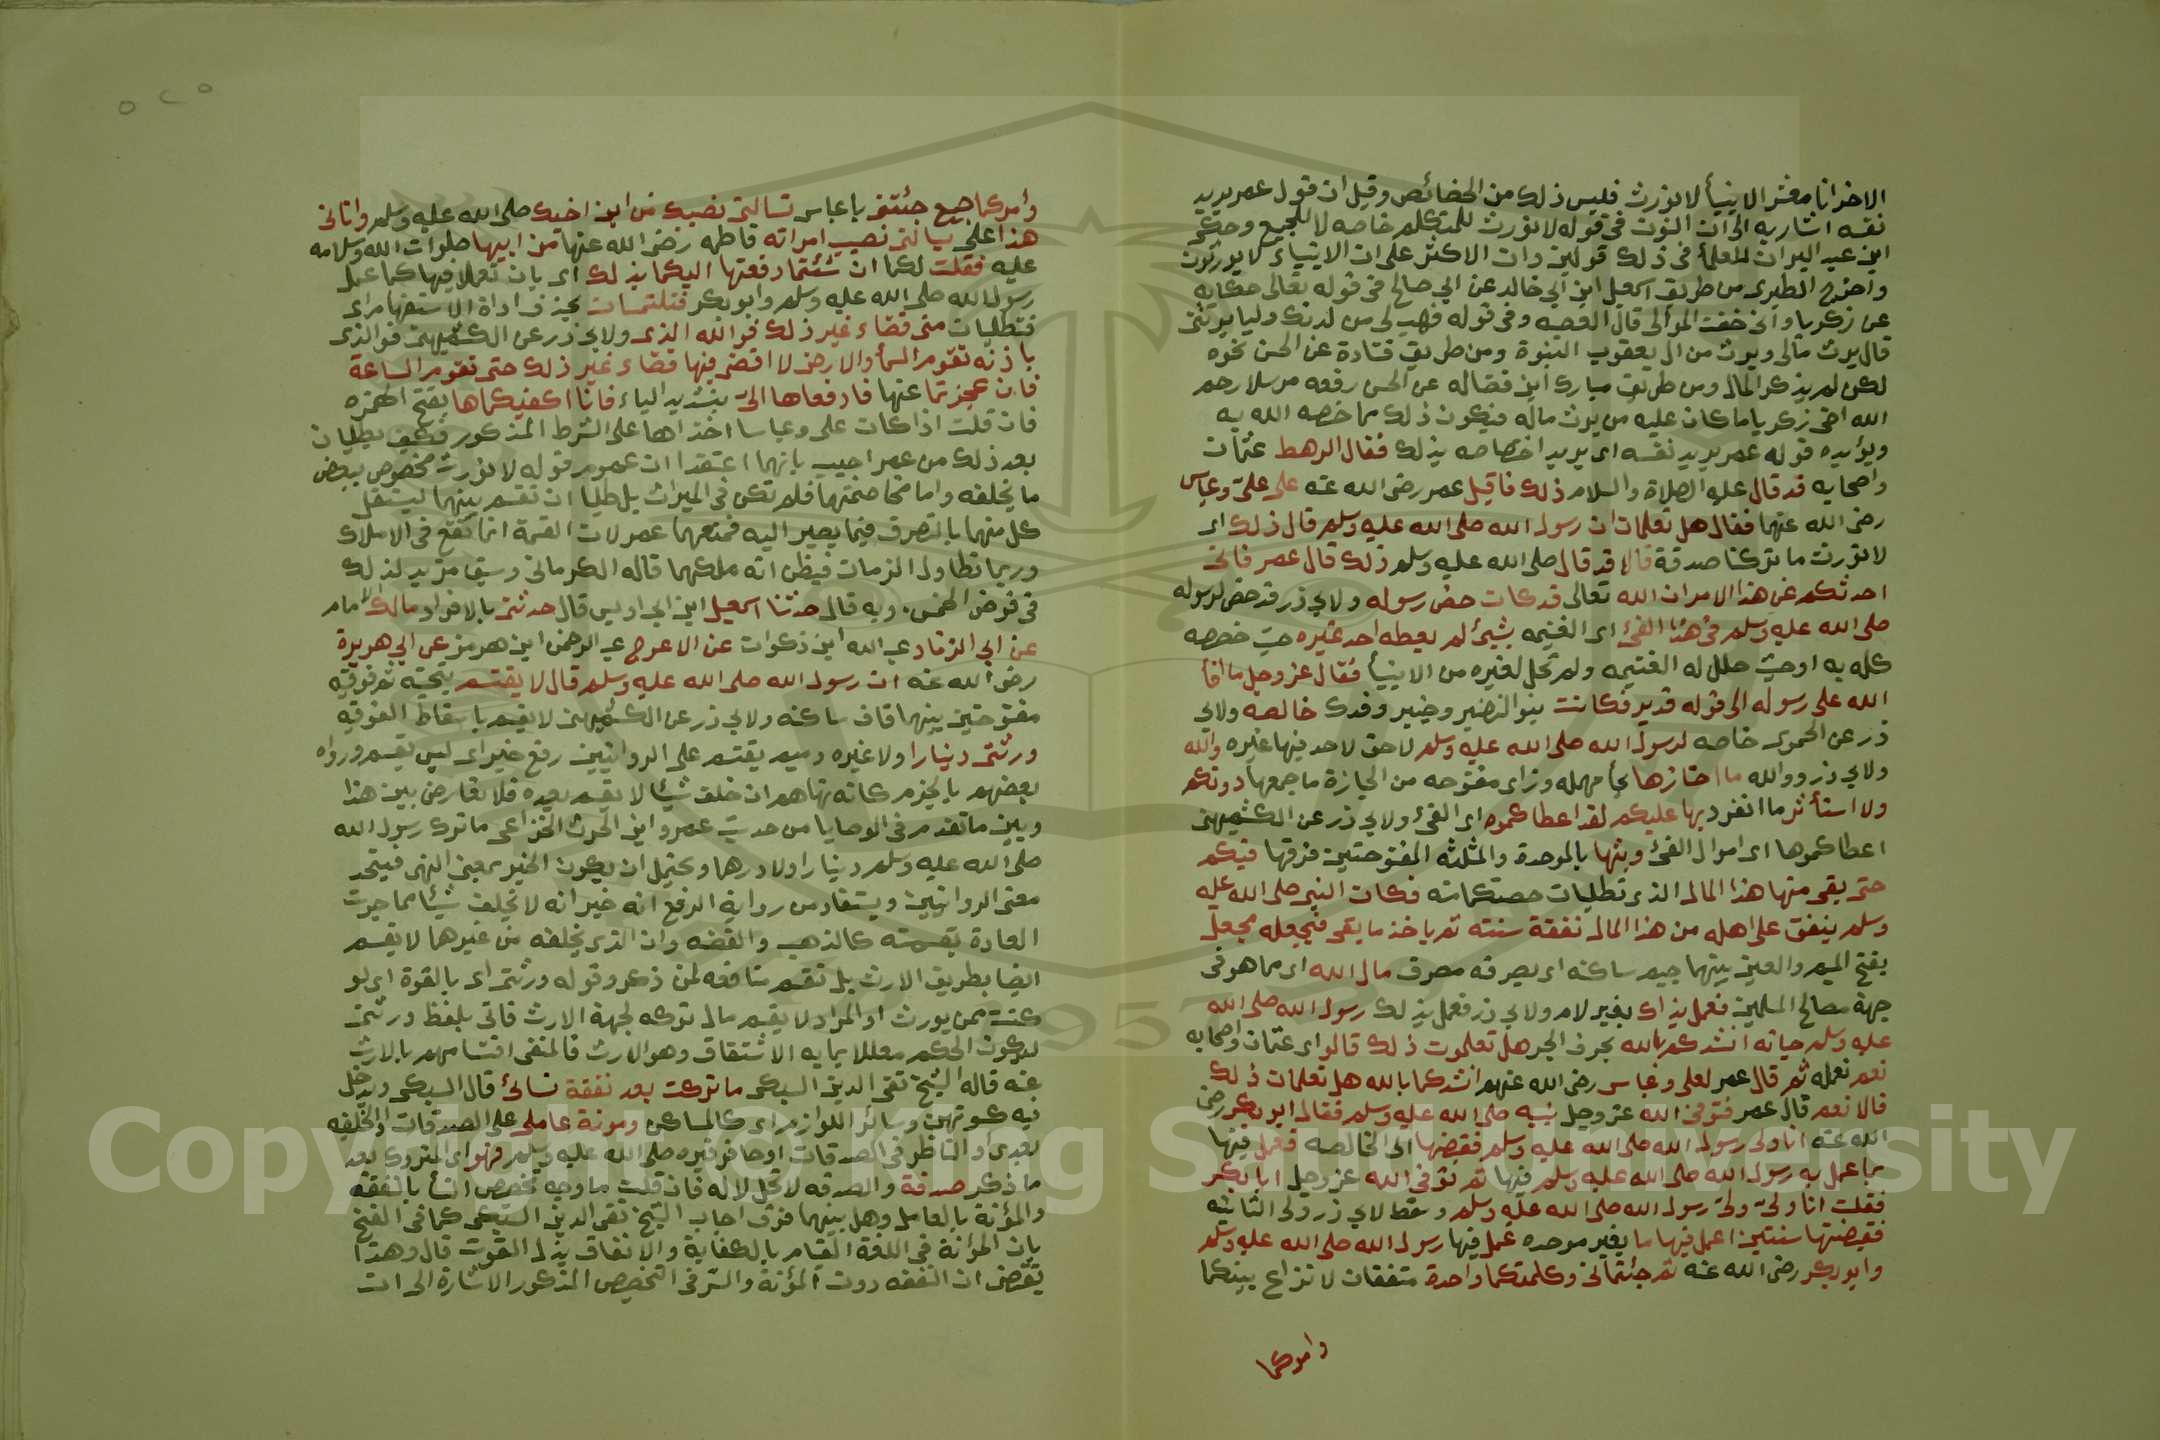 الاخر انا معشر الانبيأ لا نورث فليس ذلك من الخصائص وقيل ان قول عمر يريد
نفسه اشار به الى ان النون في قوله لا نورث للمتكلم خاصه لا للجميع وحكى
ابن عبد البر ان للعلمأ في ذلك قولين وان الاكثر على ان الانبياء لا يورثون
واخرج الطبرى من طريق اسمعيل ابن ابي خالد عن ابي صالح في قوله تعالى حكايه
عن زكريا واني خفت الموالى قال العصبه وفي قوله فهب لى من لدنك وليا يرثنى
قال يرث مالى ويرث من ال يعقوب النبوة ومن طريق قتادة عن الحسن نحوه
لكن لم يذكر المال ومن طريق مبارك ابن فضاله عن الحسن رفعه مرسلا رحم
الله اخى زكريا ما كان عليه من يرث ماله فيكون ذلك مما خصه الله به
ويؤيده قوله عمر يريد نفسه اى يريد اختصاصه بذلك فقال الرهط عثمان
واصحابه قد قال عليه الصلاة والسلام ذلك فاقبل عمر رضى الله عنه على علىّ وعباس
رضى الله عنهما فقال هل تعلمان ان رسول الله صلى الله عليه وسلم قال ذلك اى
لا نورث ما تركنا صدقة قالا قد قال صلى الله عليه وسلم ذلك قال عمر فانى
احدثكم عن هذا الامر ان الله تعالى قد كان خص رسوله ولابي ذر قد خص لرسوله
صلى الله عليه وسلم في هذا الفئ اى الغنيمه بشئ لم يعطه احد غيره حيث خصصه
كله به او حيث حلل له الغنيمه ولم تحل لغيره من الانبيأ فقال عز وجل ما افأ
الله على رسوله الى قوله قدير فكانت بنو النضير وخيبر وفدك خالصه ولابي
ذر عن الحموى خاصه لرسول الله صلى الله عليه وسلم لا حق لاحد فيها غيره والله
ولابي ذر ووالله ما احتازها بحأ مهمله وزاى مفتوحه من الحيازة ما جمعها دونكم
ولا استأثر ما انفرد بها عليكم لقد اعطاكموه اى الفئ ولابي ذر عن الكشميهنى
اعطاكموها اى اموال الفئ وبثها بالموحدة والمثلثه المفتوحتين فرقها فيكم
حتى بقى منها هذا المال الذى تطلبان حصتكما منه فكان النبي صلى الله عليه
وسلم ينفق على اهله من هذا المال نفقة سنته ثم ياخذ ما بقى فيجعله مجعل
بفتح الميم والعين بينهما جيم ساكنه اى يصرفه مصرف مال الله اى مما هو في
جهة مصالح المسلمين فعمل بذاك بغير لام ولابي ذر فعمل بذلك رسول الله صلى الله
عليه وسلم حياته انشدكم بالله بحرف الجر هل تعلمون ذلك قالوا اى عثمان واصحابه
نعم نعمله ثم قال عمر لعلى وعباس رضى الله عنهم انشدكما بالله هل تعلمان ذلك
قالا نعم قال عمر فتوفى الله عز وجل نبيه صلى الله عليه وسلم فقال ابو بكر رضى
الله عنه انا ولى رسول الله صلى الله عليه وسلم فقبضها اى الخالصه فعمل فيها
بما عمل به رسول الله صلى الله عليه وسلم فيها ثم توفى الله عز وجل ابا بكر
فقلت انا ولىّ ولىّ رسول الله صلى الله عليه وسلم وسقط لابي ذر ولى الثانيه
فقبضتها سنتين اعمل فيها ما بغير موحده عمل فيها رسول الله صلى الله عليه وسلم
وابو بكر رضى الله عنه ثم جئتمانى وكلمتكما واحدة متفقان لا نزاع بينكما
وامركما
وأمركما جميع جئتنى يا عباس تسالنى نصيبك من ابن اخيك صلى الله عليه وسلم واتانى
هذا على يسالنى نصيب امراته فاطمه رضى الله عنها من ابيها صلوات الله وسلامه
عليه فقلت لكما ان شئتما دفعتها اليكما بذلك اى بان تعملا فيها كما عمل
رسول الله صلى الله عليه وسلم وابو بكر فتلتمسان بحذف اداة الاستفهام اى
فتطلبان منى قضاء غير ذلك فوالله الذى ولابي ذر عن الكشميهنى فوالذى
باذنه تقوم السمأ والارض لا اقضى فيها قضاء غير ذلك حتى تقوم الساعة
فان عجزتما عنها فادفعاها الىّ بتشديد الياء فانا اكفيكماها بفتح الهمزه
فان قلت اذا كان على وعباسا اخذاها على الشرط المذكور فكيف يطلبان
بعد ذلك من عمر اجيب بانهما اعتقدا ان عموم قوله لا نورث مخصوص ببعض
ما يخلفه واما مخاصمتهما فلم تكن في الميراث بل طلبا ان تقسم بينهما ليستقل
كل منهما بالتصرف فيما يصير اليه فمنعهما عمر لان القسمة انما تقع في الاملاك
وربما تطاول الزمان فيظن انه ملكهما قاله الكرمانى وسبق مزيد لذلك
في فرض الخمس. وبه قال حدثنا اسمعيل ابن ابي اويس قال حدثنى بالافراد مالك الامام
عن ابي الزناد عبد الله ابن ذكوان عن الاعرج عبد الرحمن ابن هرمز عن ابي هريرة
رضى الله عنه ان رسول الله صلى الله عليه وسلم قال لا يقتسم بتحتيه ثم فوقيه
مفتوحتين بينهما قاف ساكنه ولابي ذر عن الكشميهنى لا يقسم باسقاط الفوقيه
ورثتى دينارا ولا غيره وميم يقتسم على الروايتين رفع خبر اى ليس يقسم ورواه
بعضهم بالجزم كانه نهاهم ان خلف شيئا لا يقسم بعده فلا تعارض بين هذا
وبين ما تقدم في الوصايا من حديث عمرو ابن الحرث الخزاعى ما ترك رسول الله
صلى الله عليه وسلم دينارا ولا درهما ويحتمل ان يكون الخبر بمعنى النهى فيتحد
معنى الروايتين ويستفاد من رواية الرفع انه خبر انه لا يخلف شيئا مما جرت
العادة بقسمته كالذهب والفضه وان الذى يخلفه من غيرها لا يقسم
ايضا بطريق الارث بل تقسم منافعه لمن ذكر وقوله ورثتى اى بالقوة اى لو
كنت ممن يورث او المراد لا يقسم مال تركه لجهة الارث فاتى بلفظ ورثتى
ليكون الحكم معللا بما به الاشتقاق وهو الارث فالمنفى اقتسامهم بالارث
عنه قاله الشيخ تقى الدين السبكى ما تركت بعد نفقة نسائى قال السبكى ويدخل
فيه كسوتهن وسائر اللوازم اى كالمساكن ومونة عاملى على الصدقات او الخليفه
بعدى او الناظر في الصدقات او حافر قبره صلى الله عليه وسلم فهو اى المتروك بعد
ما ذكر صدقة والصدقه لا تحل لاله فان قلت ما وجه تخصيص النسأ بالنفقه
والمؤنة بالعامل وهل بينهما فرق اجاب الشيخ تقى الدين السبكى كما في الفتح
بان المؤانة في اللغة القيام بالكفاية والانفاق بذل القوت قال وهذا
يقتضى ان النفقه دون المؤنة والسّر في التخصيص المذكور الاشارة الى ان
Copyright © King Saud University
1957